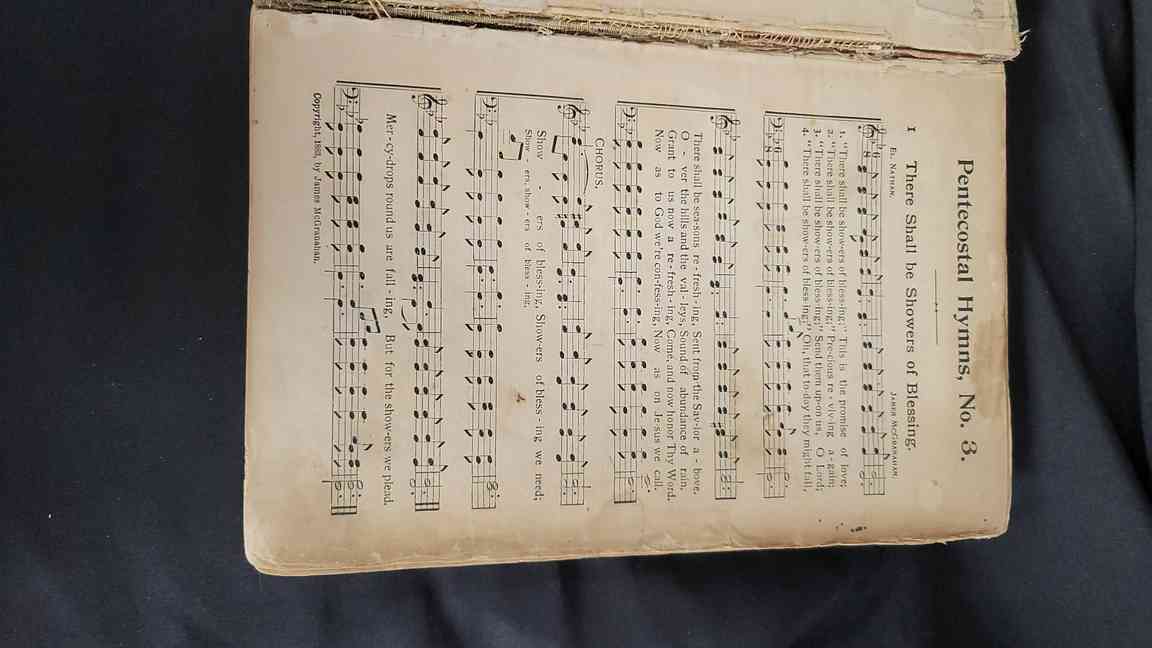 Pentecostal Hymns, No. 3.
1 There Shall be Showers of Blessing.
El Nathan. James McGranahan.
1. "There shall be show-ers of bless-ing;" This is the promise of love;
2. "There shall be show-ers of bless-ing;" Pre-cious re-viv-ing a-gain;
3. "There shall be show-ers of bless-ing;" Send them up-on us, O Lord;
4. "There shall be show-ers of bless-ing;" Oh, that to-day they might fall,
There shall be sea-sons re-fresh-ing, Sent from the Sav-ior a-bove.
O-ver the hills and the val-leys, Sound of abundance of rain.
Grant to us now a re-fresh-ing, Come, and now honor Thy Word.
Now as to God we're con-fess-ing, Now as on Je-sus we call.
Chorus.
Show-ers of bless-ing, Show-ers of bless-ing we need;
Show-ers, show-ers of bless-ing,
Mer-cy-drops round us are fall-ing, But for the show-ers we plead.
Copyright, 1883, by James McGranahan.